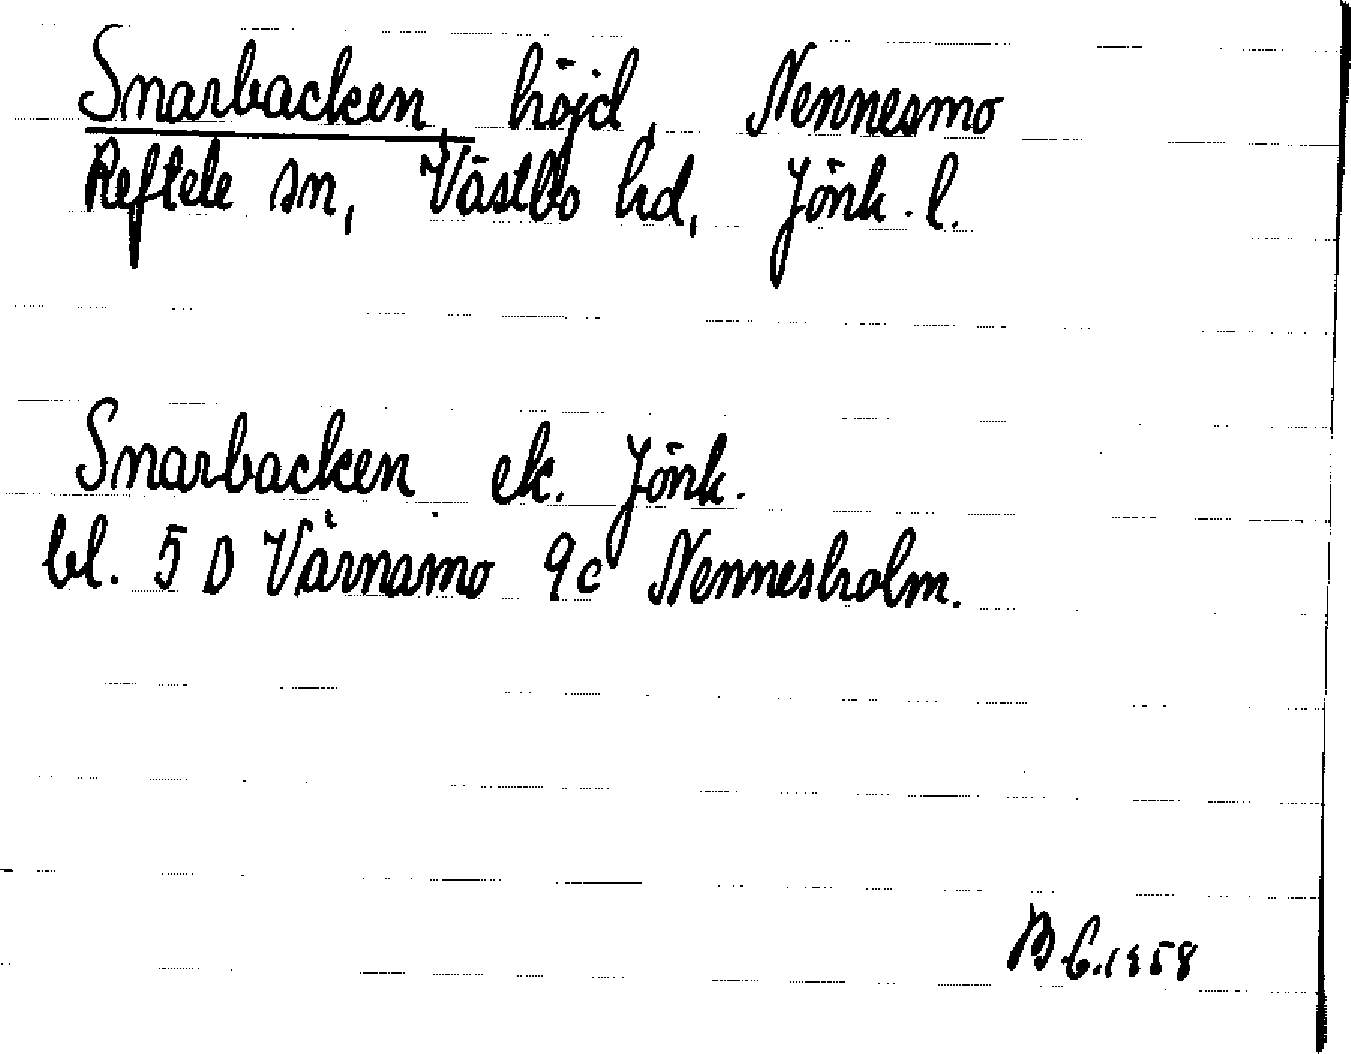 Snarbacken, höjd, Nennesmo
Reftele sn, Västbo hd, Jönk. l.
Snarbacken ek. Jönk.
bl. 5 D Värnamo 9c Nennesholm.
1958